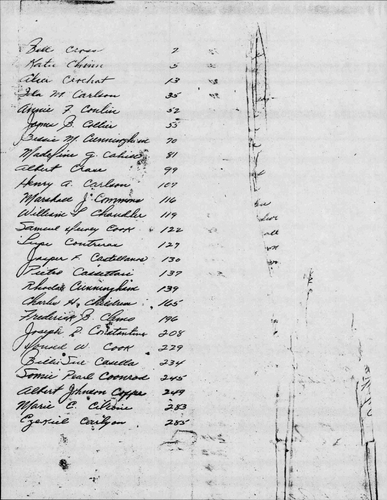 Bill Cross 2
Katie Chinn 5
Alex Crochat 13
Ida M Carlson 35
Annie F Conlin 52
Jayne B. Collier 55
Bessie M. Cunningham 70
Madeline J. Cahill 81
Albert Crane 99
Henry A. Carlson 107
Marshall J Commons 116
William S Chandler 119
Samuel Cook 122
Lupe Contreras 127
Jasper F. Castellanca 130
Pietro 137
Rhoda Cunningham 139
Charlie H. Children 165
Frederick B. Clews 196
Joseph D Costantino 208
W. Cook 229
Billie Sue Casella 234
Pearl Coonrod 245
Albert Johnson Copper 249
Marie C. 253
Ezekiel Carlyon 255